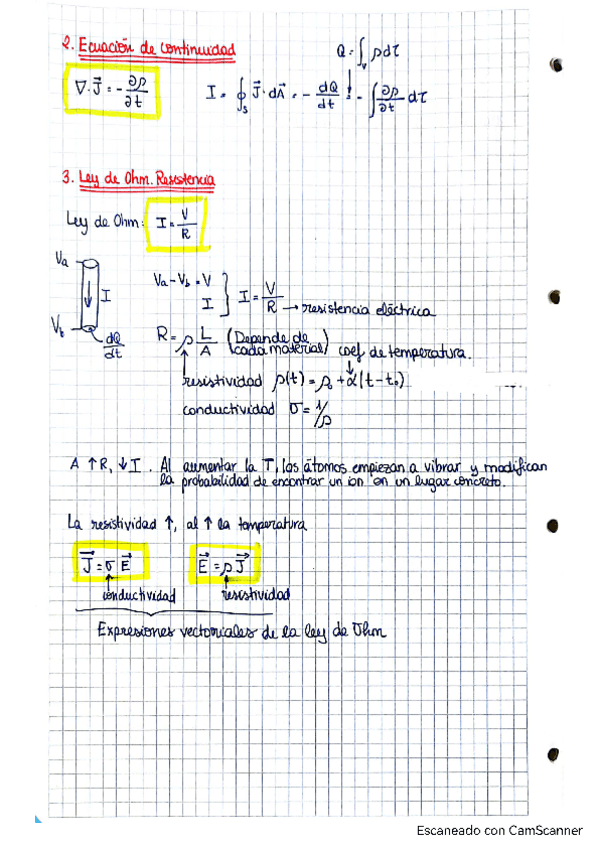 2. Ecuación de continuidad
Q = ∫_v ρdτ
∇·J⃗ = -∂ρ/∂t
I = ∮_S J⃗·dA⃗ = - dQ/dt = - ∫ ∂ρ/∂t dτ
3. Ley de Ohm. Resistencia
Ley de Ohm: I = V/R
Va
I
Vb
dQ/dt
Va - Vb = V
I
} I = V/R → resistencia eléctrica
R = ρ L/A (Depende de cada material) coef de temperatura.
resistividad ρ(t) = ρ₀ + α(t - t₀)
conductividad σ = 1/ρ
A ↑R, ↓I. Al aumentar la T, los átomos empiezan a vibrar y modifican
la probabilidad de encontrar un ion en un lugar concreto.
La resistividad ↑, al ↑ la temperatura
J⃗ = σ E⃗
E⃗ = ρ J⃗
conductividad
resistividad
Expresiones vectoriales de la ley de Ohm
Escaneado con CamScanner